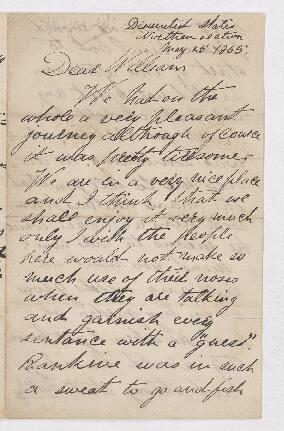 Desunited States
Northern section
May 25th 1865.
Dear William
We had on the
whole a very pleasant
journey although of course
it was pretty tiresome.
We are in a very nice place
and I think that we
shall enjoy it very much
only I wish the people
here would not make so
much use of their noses
when they are talking
and garnish every
sentance with a "guess".
Rankine was in such
a sweat to go and fish